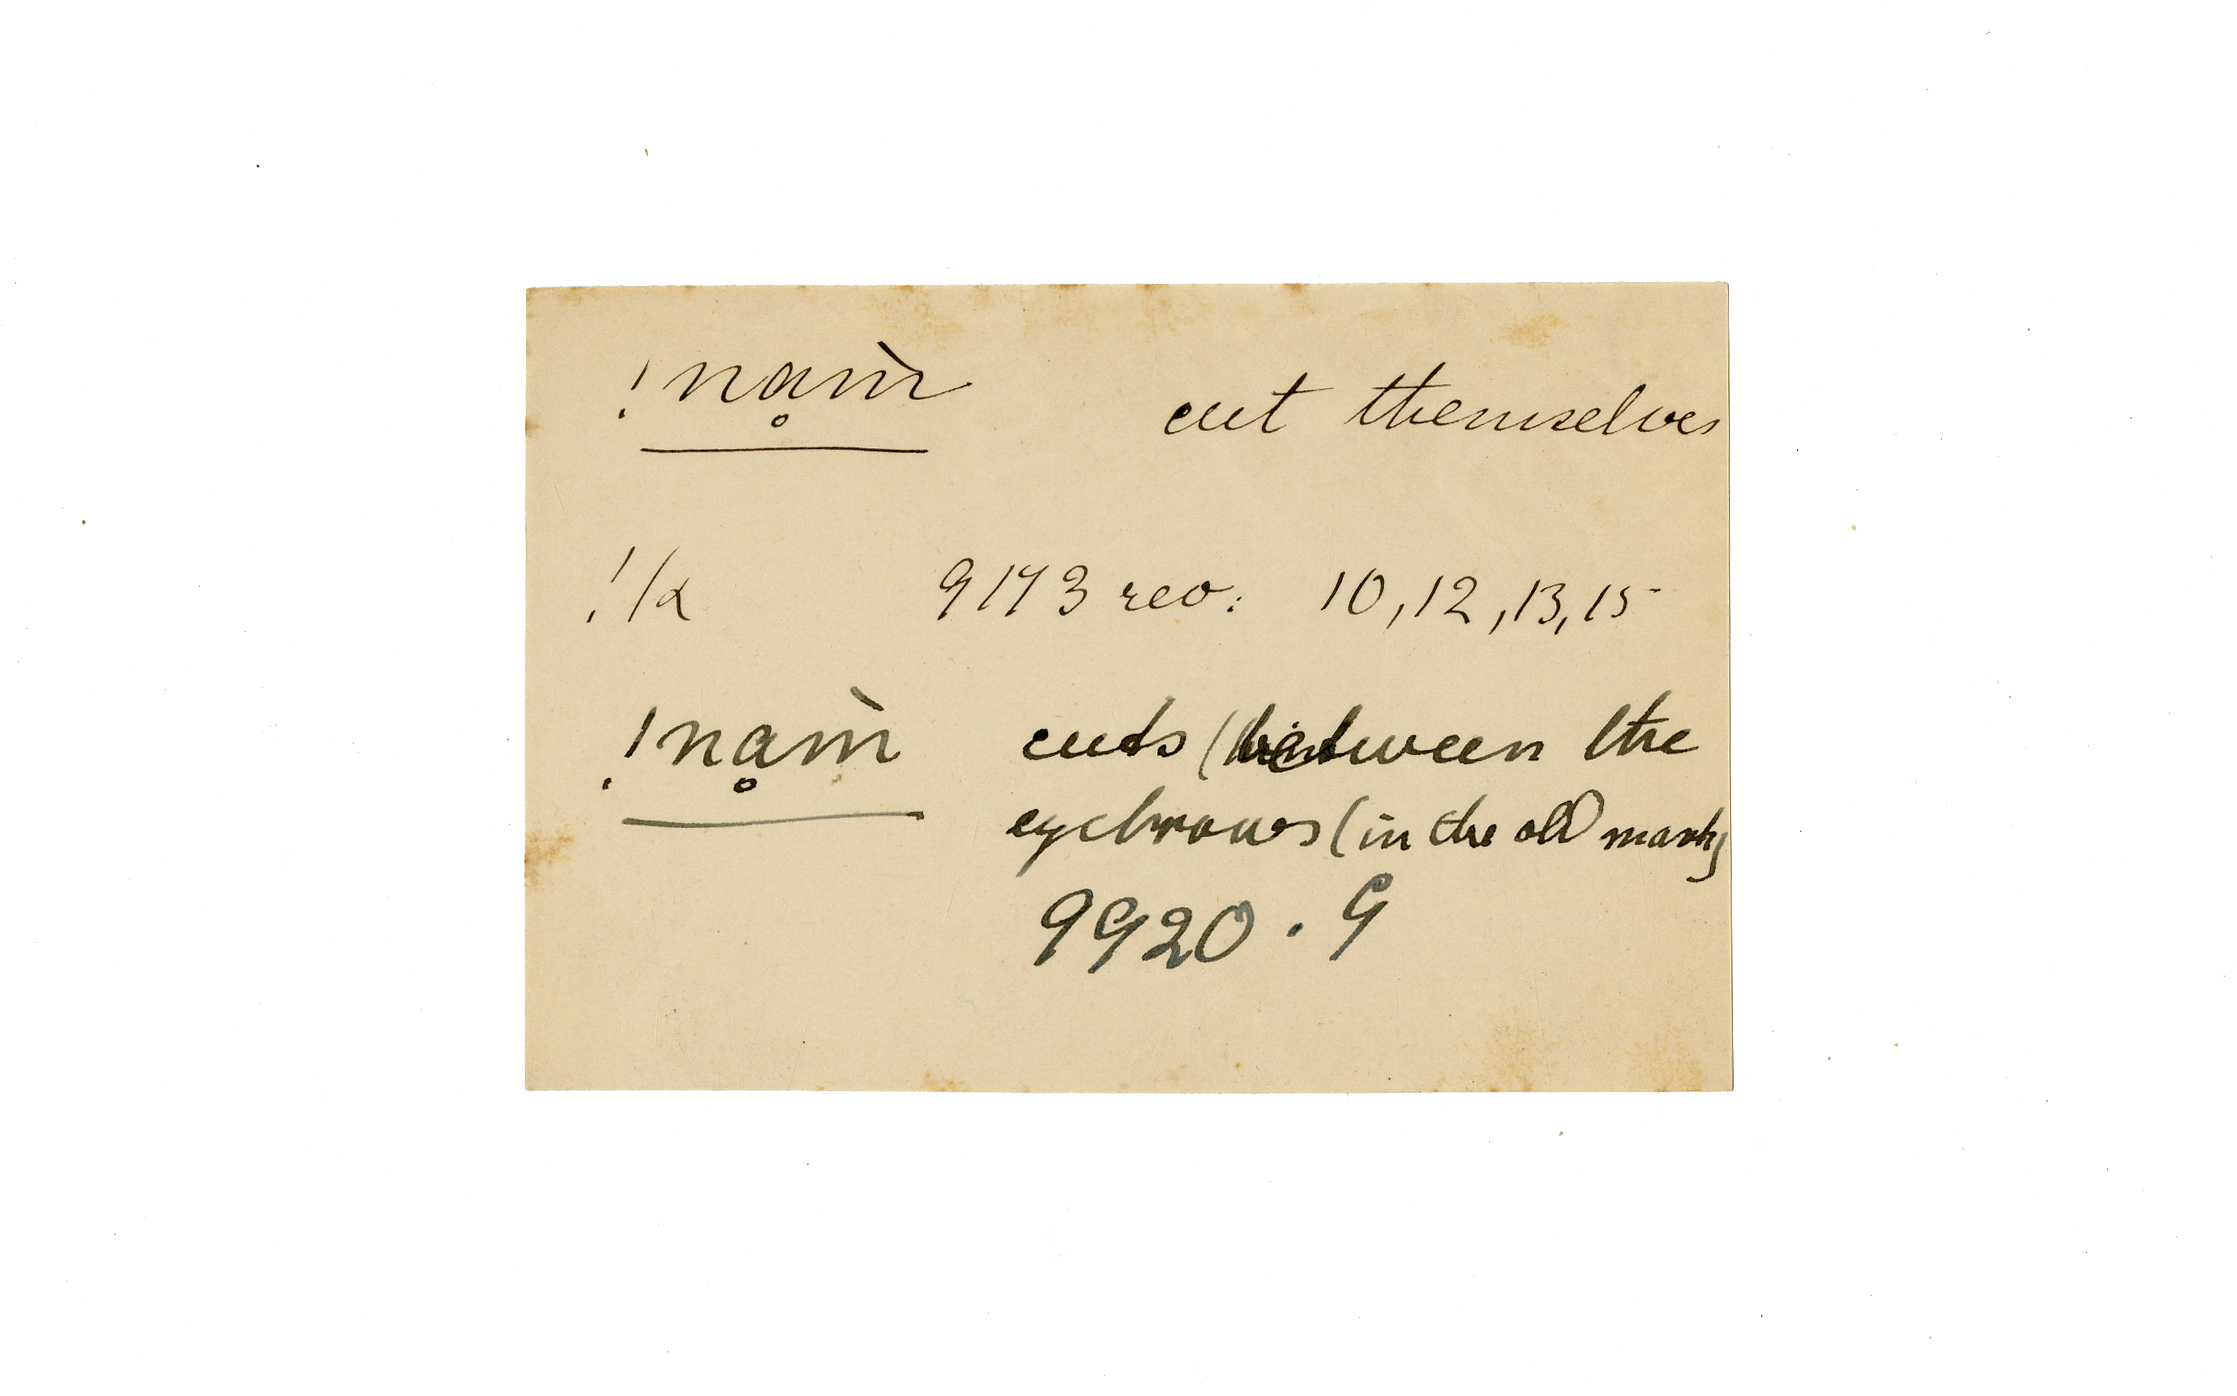 !nḁm̀ cut themselves
!/α 9173 rev: 10, 12, 13, 15
!nḁm̀ cuts (between the
eyebrows (in the old mark)
9920. 9